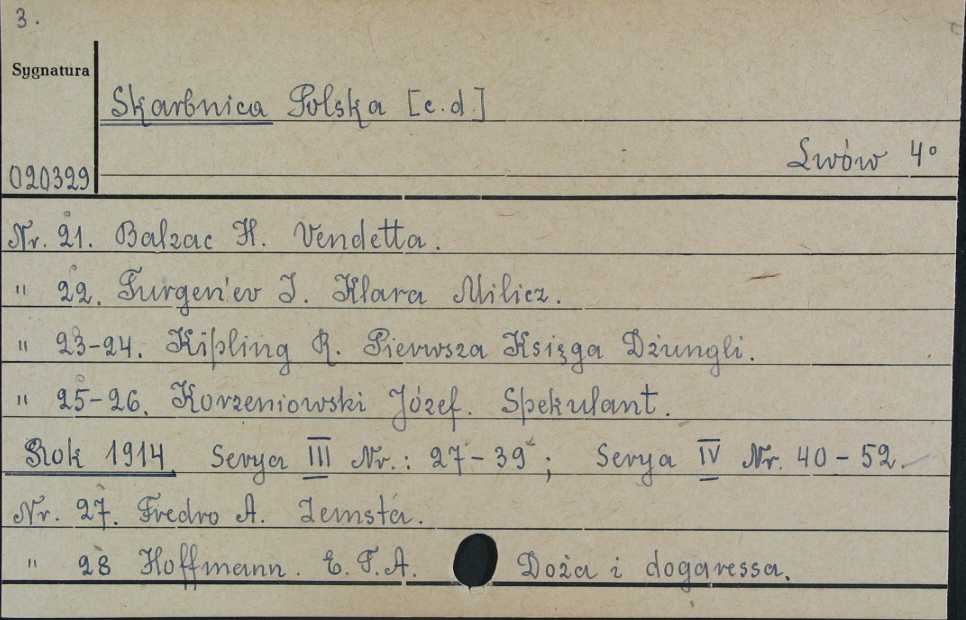 3.
Sygnatura
Skarbnica Polska [c.d.]
Lwów 4°
020329
Nr. 21. Balzac H. Vendetta.
" 22. Turgen'ev I. Klara Milicz.
" 23-24. Kipling R. Pierwsza Księga Dżungli.
" 25-26. Korzeniowski Józef. Spekulant.
Rok 1914 Serya III Nr.: 27-39; Serya IV Nr. 40-52.
Nr. 27. Fredro A. Zemsta.
" 28 Hoffmann. E.T.A. Doża i dogaressa.